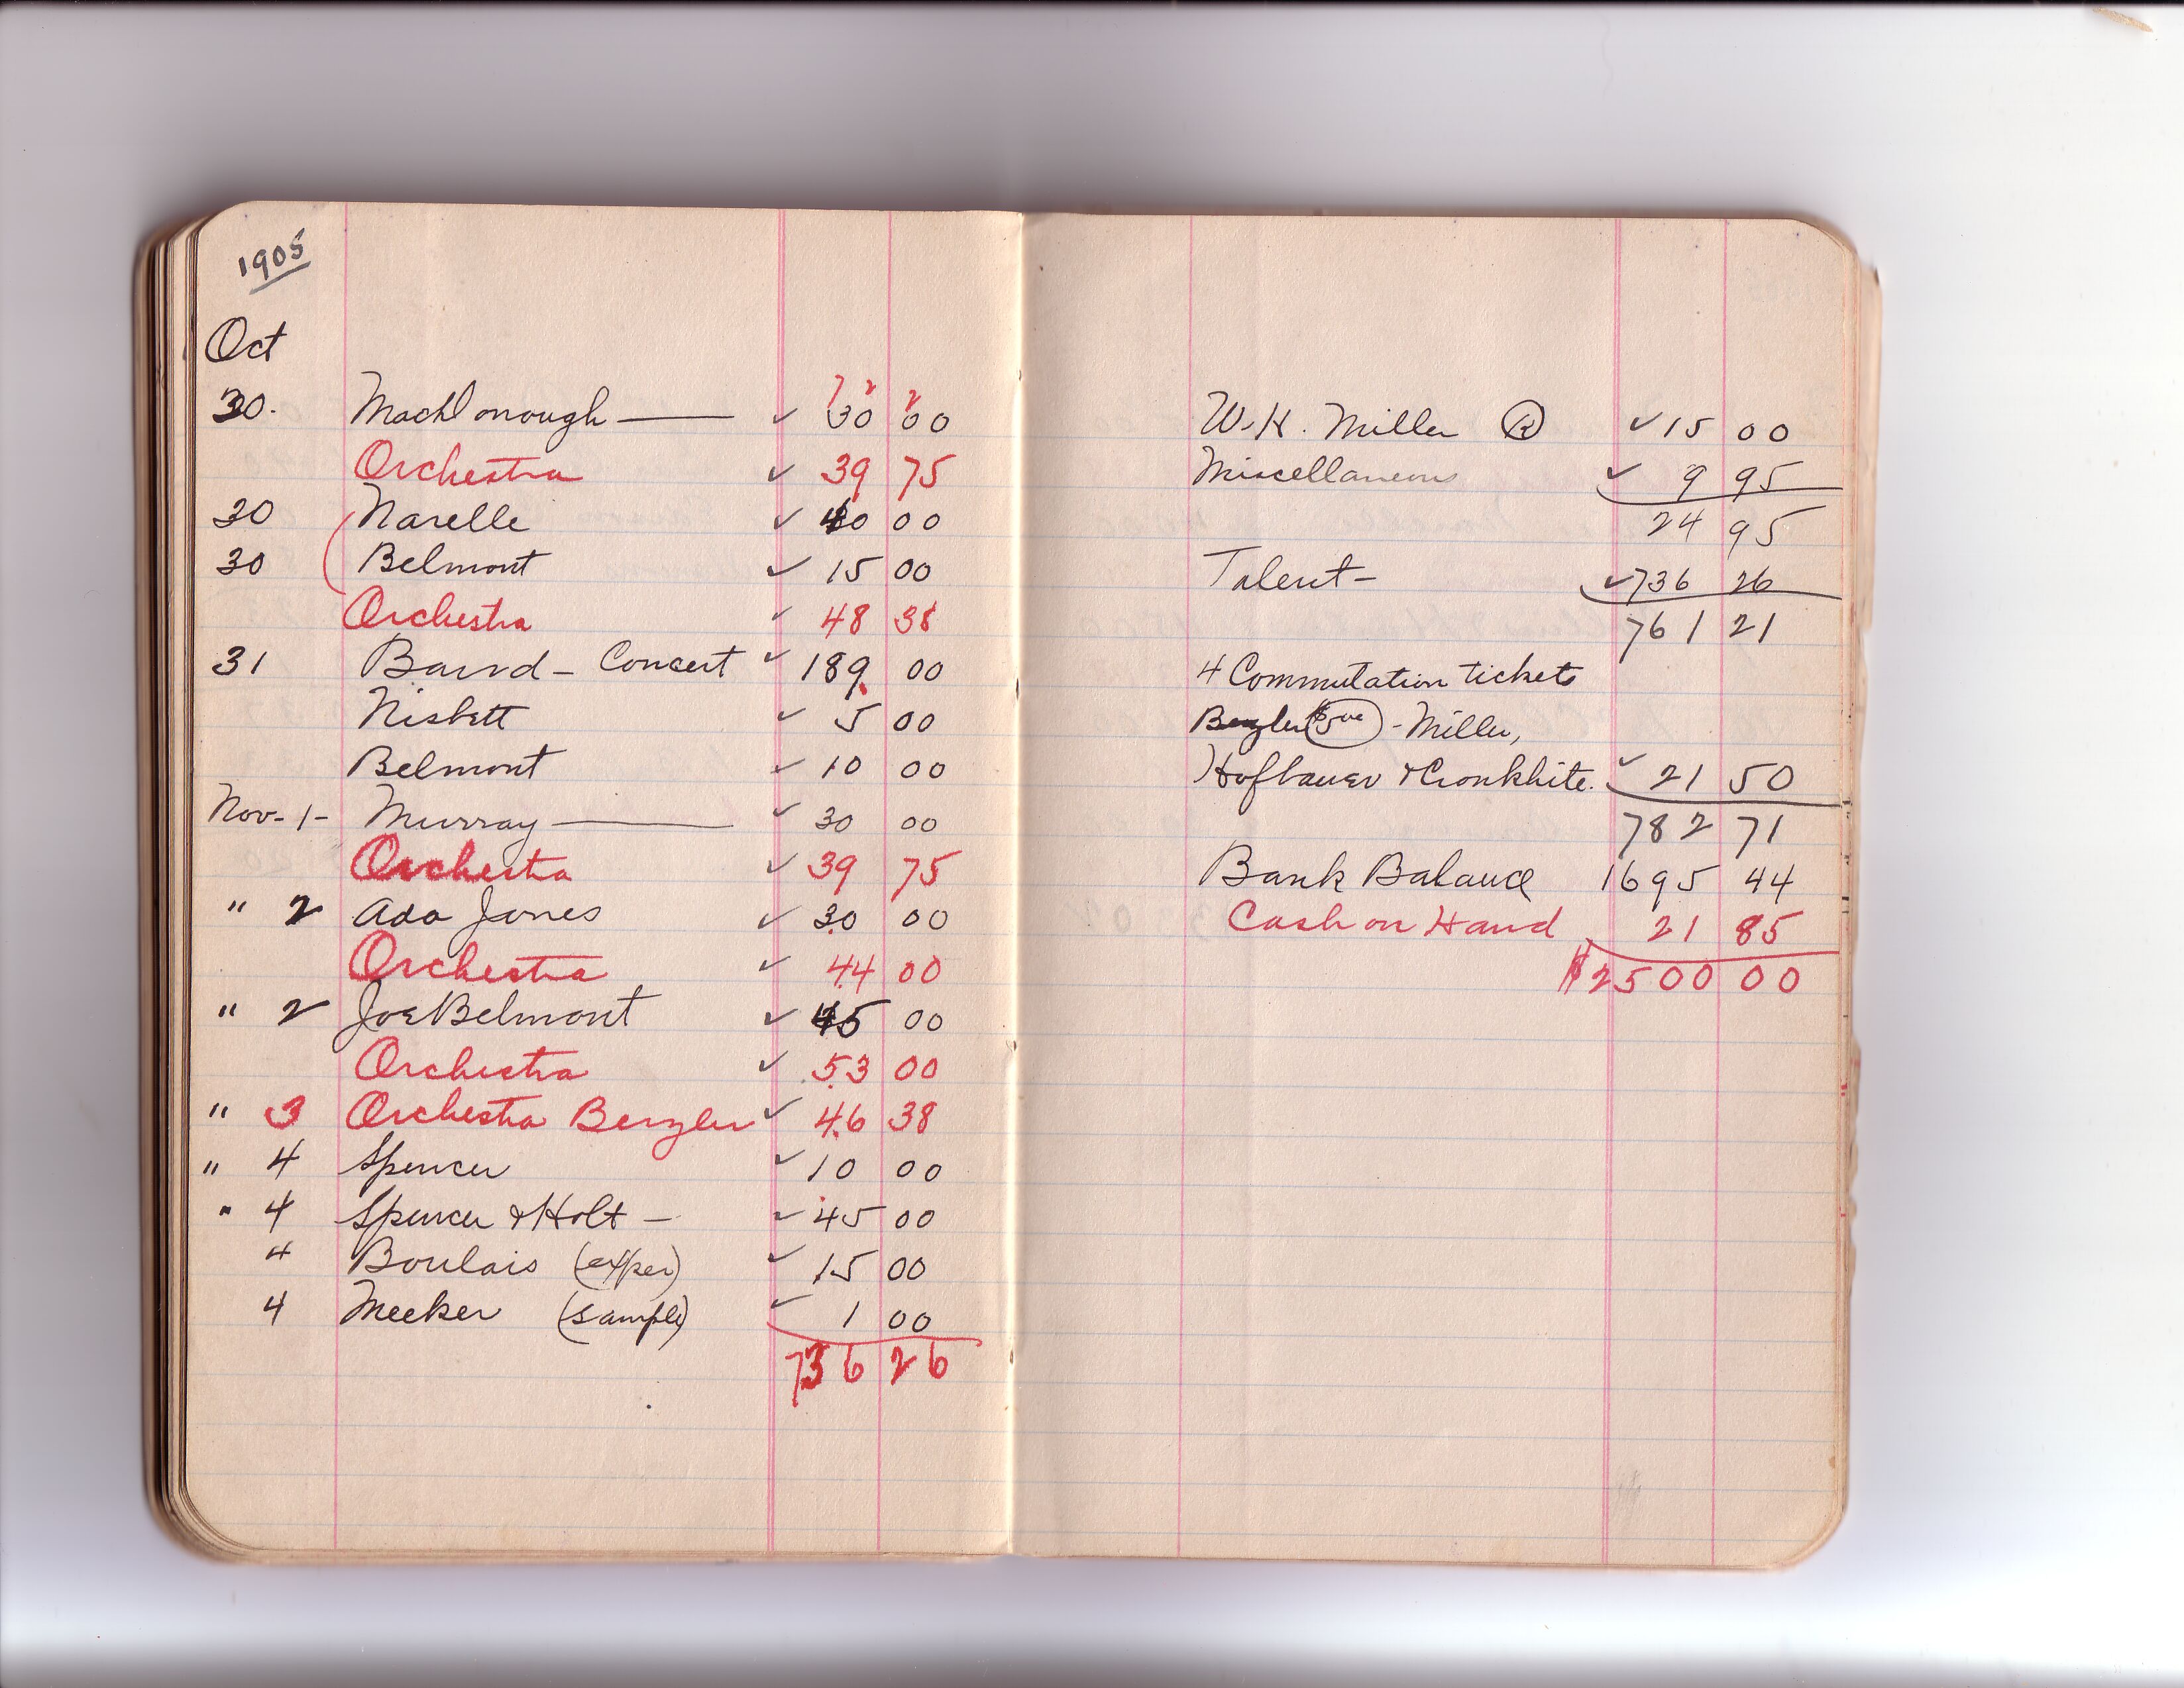 1905
Oct
7 2 2
30. MacDonough — ✓ 30 00
Orchestra ✓ 39 75
30 Narelle ✓ 40 00
30 Belmont ✓ 15 00
Orchestra ✓ 48 38
31 Band - Concert ✓ 189 00
Nisbett ✓ 5 00
Belmont ✓ 10 00
Nov-1- Murray — ✓ 30 00
Orchestra ✓ 39 75
" 2 Ada Jones ✓ 30 00
Orchestra ✓ 44 00
" 2 Joe Belmont ✓ 45 00
Orchestra ✓ 53 00
" 3 Orchestra Benzler ✓ 46 38
" 4 Spencer ✓ 10 00
" 4 Spencer & Holt - ✓ 45 00
4 Boulais (exper) ✓ 15 00
4 Meeker (sample) ✓ 1 00
736 26
W. H. Miller ✓ 15 00
Miscellaneous ✓ 9 95
24 95
Talent - ✓ 736 26
761 21
4 Commutation tickets
Benzler - Miller,
Hofbauer & Cronkhite. ✓ 21 50
782 71
Bank Balance 1695 44
Cash on Hand 21 85
$2500 00